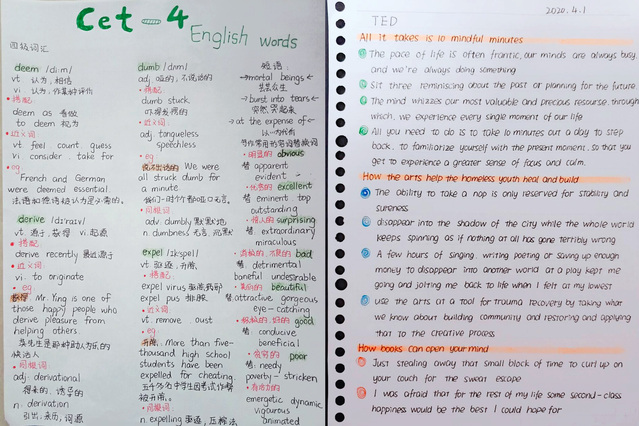 Cet-4
English words
四级词汇
deem /diːm/
vt. 认为,相信
vi. 认为,作某种评价
搭配
deem as 看做
to deem 视为
近义词
vt. feel count guess
vi. consider. take for
eg
French and German
were deemed essential.
法语和德语被认为是必需的。
derive /dɪˈraɪv/
vt. 源于,获得 vi. 起源
搭配
derive recently 最近源于
近义词
vi. to originate
eg
Mr. Ying is one of
those happy people who
derive pleasure from
helping others.
同根词
adj. derivational
n. derivation
引出,来历,词源
dumb /dʌm/
adj. 哑的,不说话的
搭配
dumb stuck
近义词
adj. tongueless
speechless
eg
We were
all struck dumb for
a minute.
同根词
adv. dumbly 默默地
n. dumbness 无言,沉默
expel /ɪkˈspel/
vt. 驱逐,开除
搭配
expel virus 驱除病毒
expel pus 排脓
近义词
vt. remove oust
eg.
开除. More than five-
thousand high school
students have been
expelled for cheating.
五千多名中学生因考试作弊
被开除。
同根词
n. expelling 驱逐,压榨法
短语:
mortal beings
芸芸众生
burst into tears
突然哭起来
at the expense of
以…为代价
写作常用的形容词替换词
明显的 obvious
替 apparent
evident
优秀的 excellent
替 eminent top
outstanding
惊人的 surprising
替 extraordinary
miraculous
bad
替. detrimental
baneful undesirable
美丽的 beautiful
替 attractive gorgeous
eye-catching
good
替 conducive
beneficial
贫穷的 poor
替 needy
poverty-stricken
有活力的
energetic dynamic
vigourous
animated
2020.4.1
TED
All it takes is 10 mindful minutes
The pace of life is often frantic, our minds are always busy
and we're always doing something
Sit three reminiscing about the past or planning for the future
The mind whizzes our most valuable and precious recourse, through
which, we experience every single moment of our life
All you need to do is to take 10 minutes out a day to step
back. to familiarize yourself with the present moment, so that you
get to experience a greater sense of focus and culm.
How the arts help the homeless youth heal and build
The ability to take a nap is only reserved for stability and
sureness
disappear into the shadow of the city while the whole world
keeps spinning as if nothing at all has gone terribly wrong
A few hours of singing. writing poetry or saving up enough
money to disappear into another world at a play kept me
going and jolting me back to life when I felt at my lowest
use the arts at a tool for trauma recovery by taking what
we know about building community and restoring and applying
that to the creative process
How books can open your mind
Just stealing away that small block of time to curl up on
your couch for the sweat escape
I was afraid that for the rest of my life some second-class
happiness would be the best I could hope for